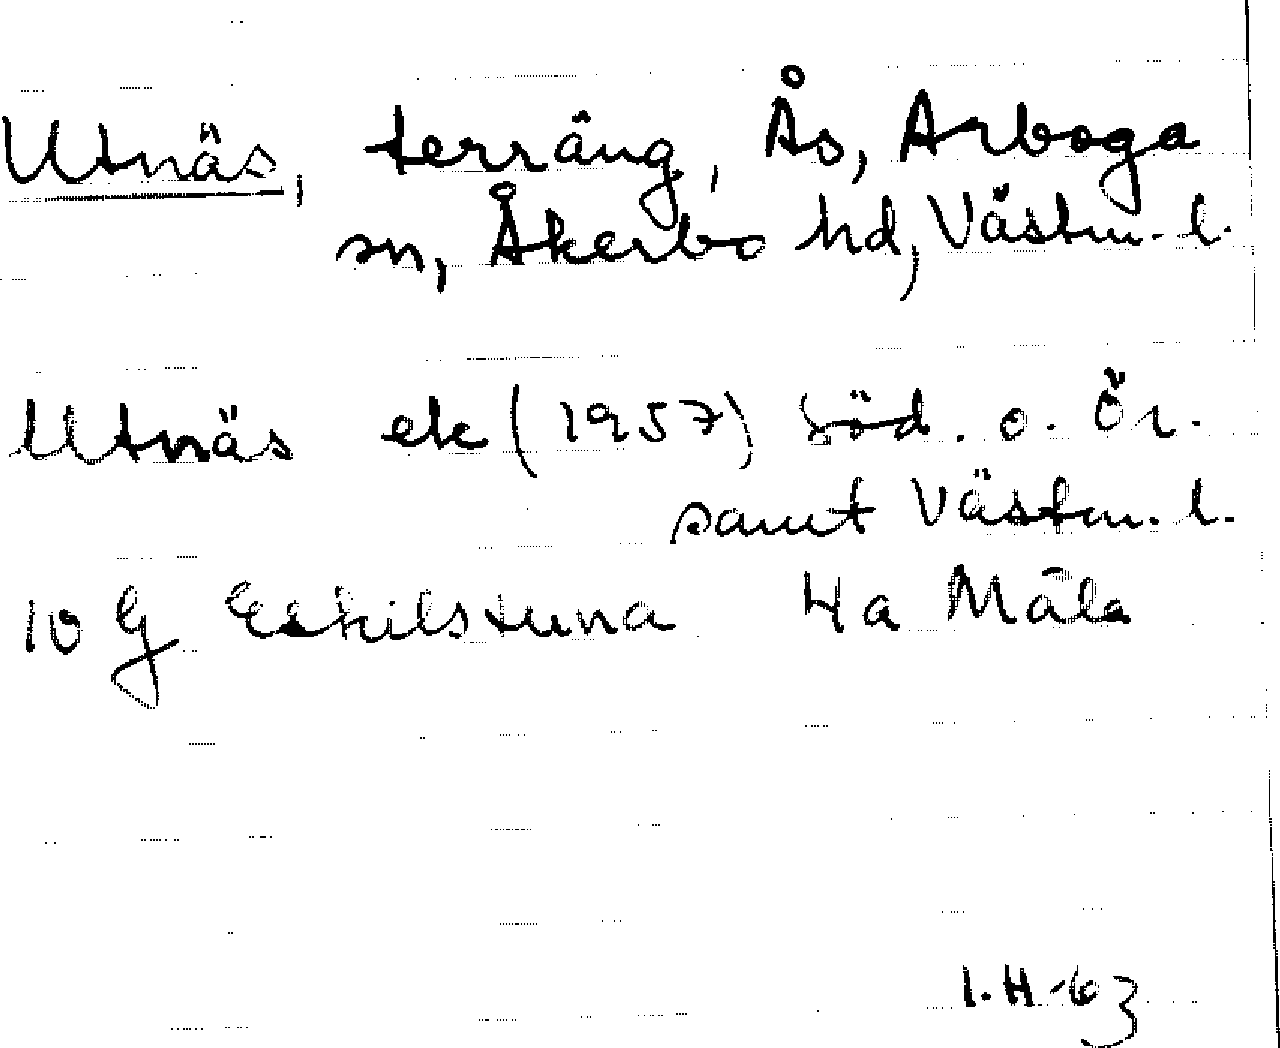 Utnäs, terräng, Ås, Arboga
sn, Åkerbo hd, Västm. l.
Utnäs ek (1957) Söd. o. Ör.
samt Västm. l.
10 G Eskilstuna 4a Mäla
I.H-63